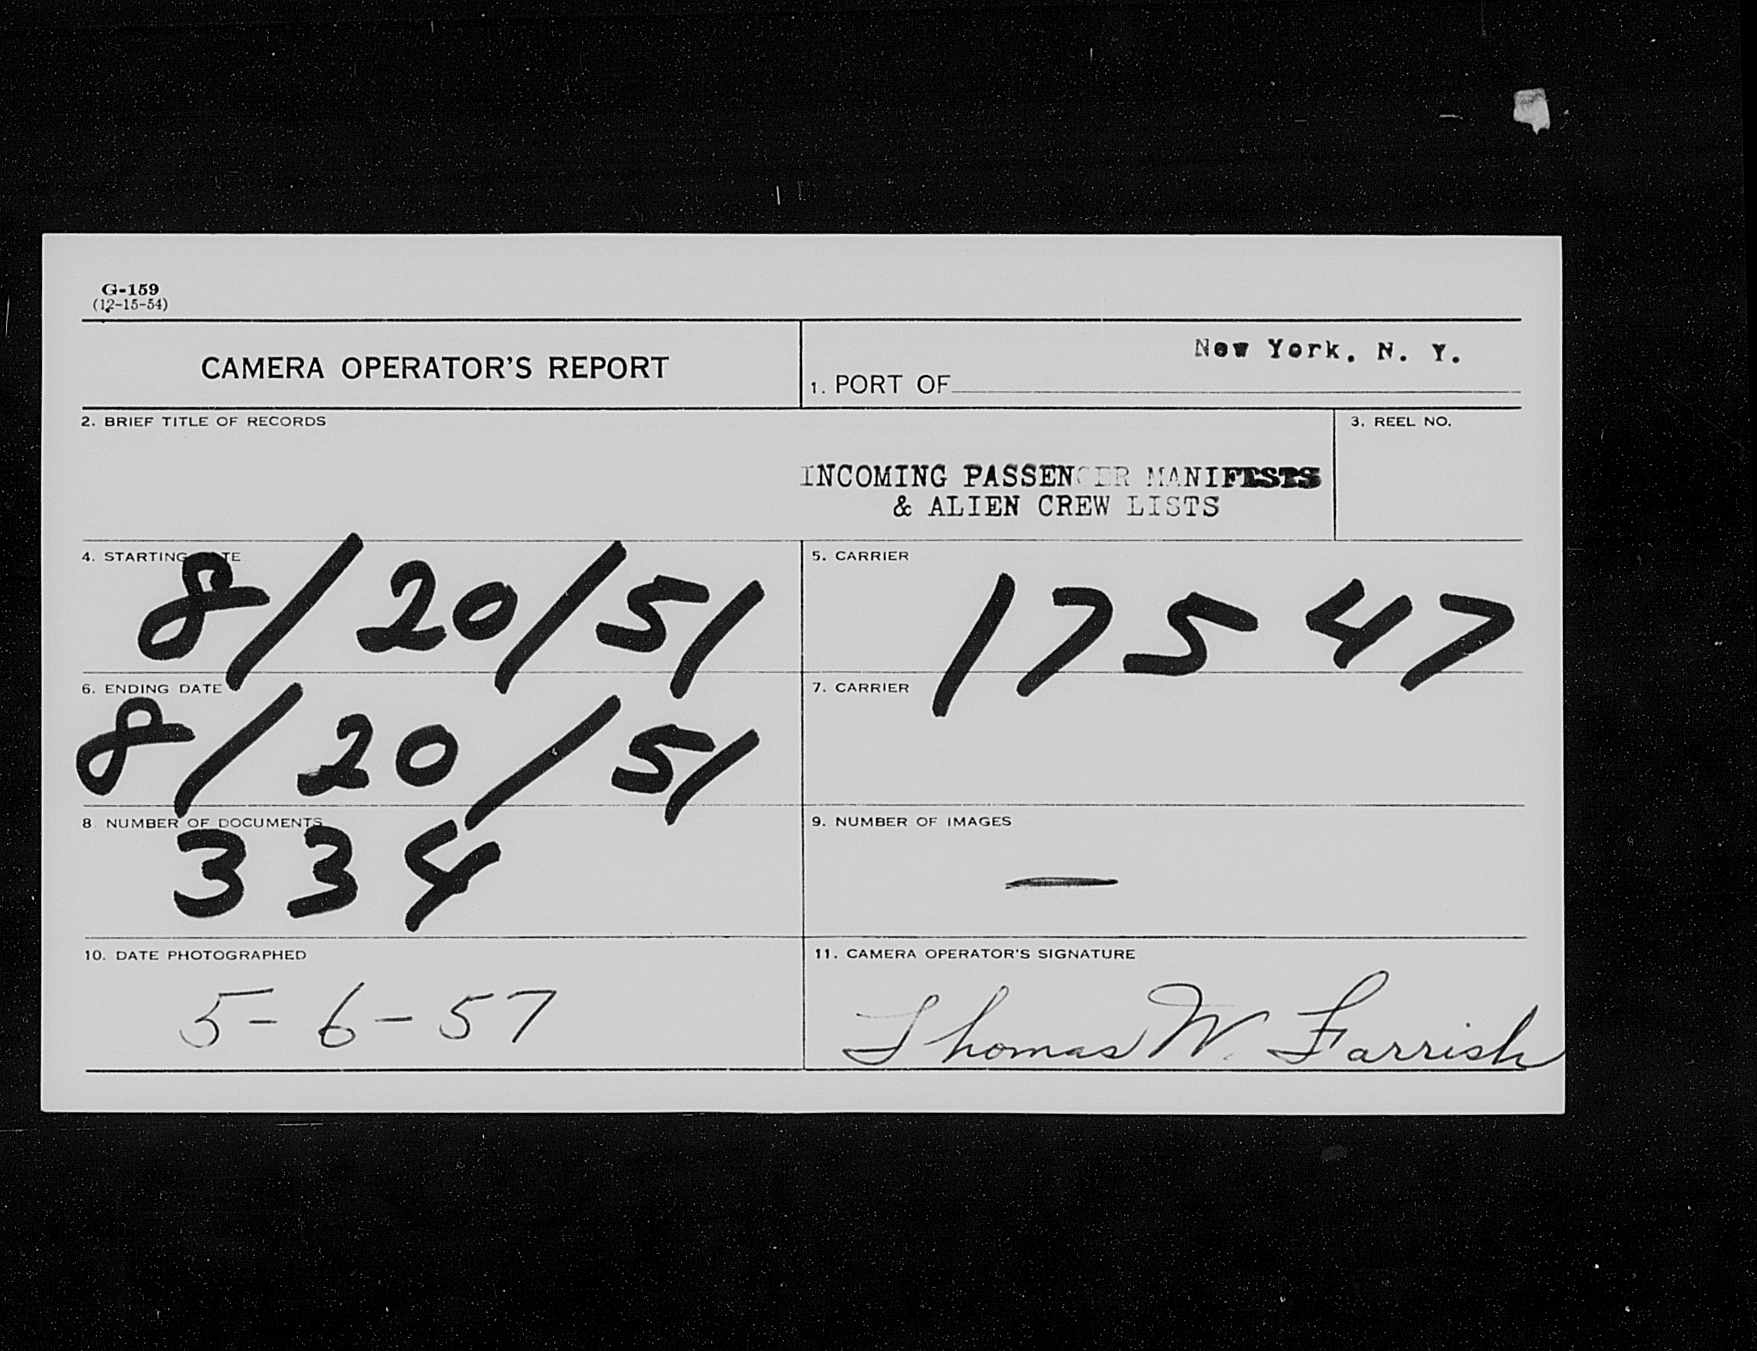 G-159
(12-15-54)
CAMERA OPERATOR'S REPORT
New York, N. Y.
1. PORT OF
2. BRIEF TITLE OF RECORDS
3. REEL NO.
INCOMING PASSENGER MANIFESTS
& ALIEN CREW LISTS
4. STARTING DATE
8/20/51
5. CARRIER
17547
6. ENDING DATE
8/20/51
7. CARRIER
8 NUMBER OF DOCUMENTS
334
9. NUMBER OF IMAGES
—
10. DATE PHOTOGRAPHED
5-6-57
11. CAMERA OPERATOR'S SIGNATURE
Thomas W. Farrish